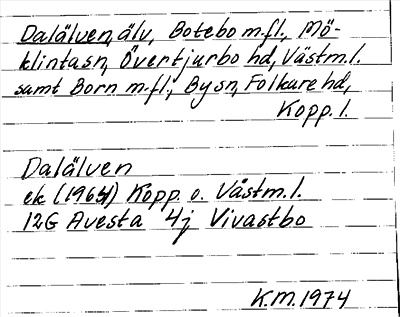 Dalälven, älv, Botebo m.fl., Mö-
klinta sn, Övertjurbo hd, Västm.l.
samt Born m.fl., By sn, Folkare hd,
Kopp. l.
Dalälven
ek (1964) Kopp. o. Västm.l.
12G Avesta 4j Vivastbo
K.M. 1974